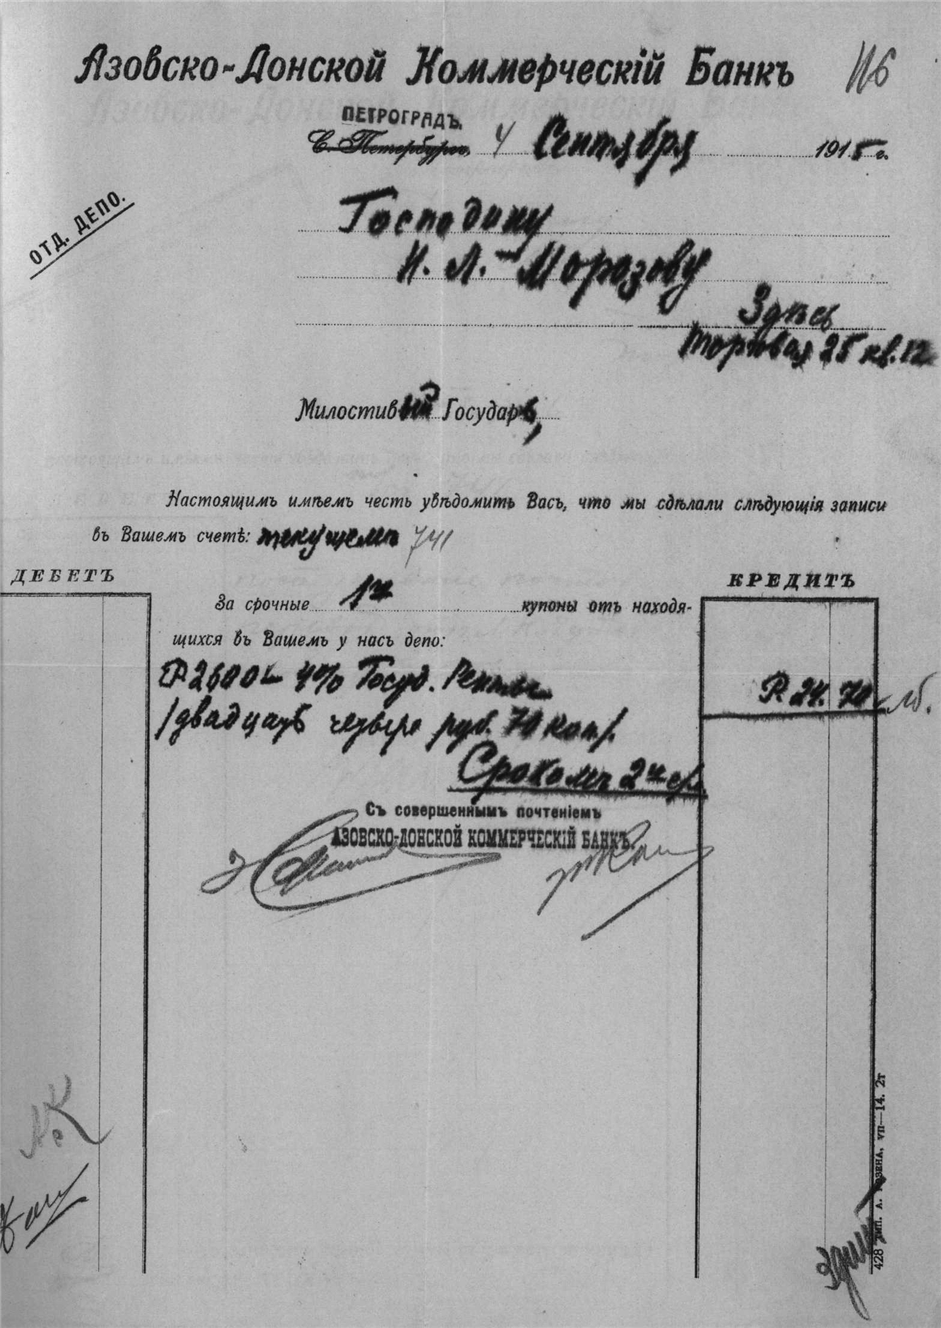 Азовско-Донской Коммерческій Банкъ
116
ПЕТРОГРАДЪ.
С. Петербургъ, 4 Сентября 1915 г.
ОТД. ДЕПО.
Господину
Н. Л. Морозову
Здѣсь
Торговая 25 кв. 12
Милостивый Государь,
Настоящимъ имѣемъ честь увѣдомить Васъ, что мы сдѣлали слѣдующія записи
въ Вашемъ счетѣ: текущемъ 741
ДЕБЕТЪ
КРЕДИТЪ
За срочные 1ч купоны отъ находя-
щихся въ Вашемъ у насъ депо:
Р 2600 4% Госуд. Ренты
Р. 24. 70
/двадцать четыре руб. 70 коп/.
Срокомъ 2ч с/м
Съ совершеннымъ почтеніемъ
АЗОВСКО-ДОНСКОЙ КОММЕРЧЕСКІЙ БАНКЪ.
428 ТИП. А. РОЗЕНА. VII—14. 2т